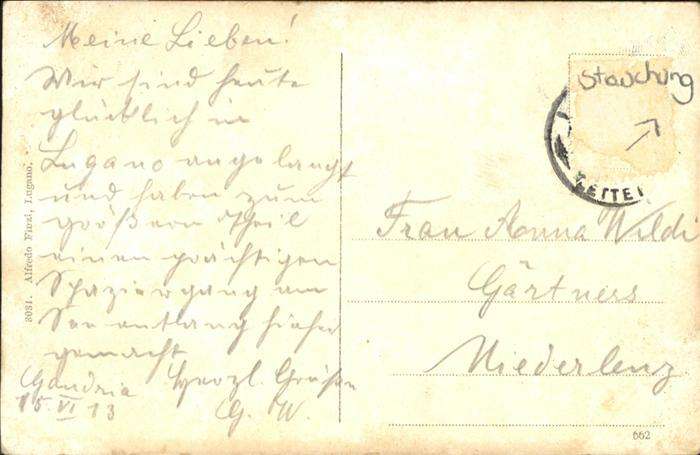 Meine Lieben!
Wir sind heute
glücklich in
Lugano angelangt
und haben zum
größern Theil
einen prächtigen
Spaziergang am
See entlang hieher
gemacht
Gandria Herzl. Grüßen
15. VI 13 G. W.
8031. Alfredo Finzi, Lugano.
Stauchung
LETTE
Frau Anna Wildi
Gärtners
Niederlenz
662